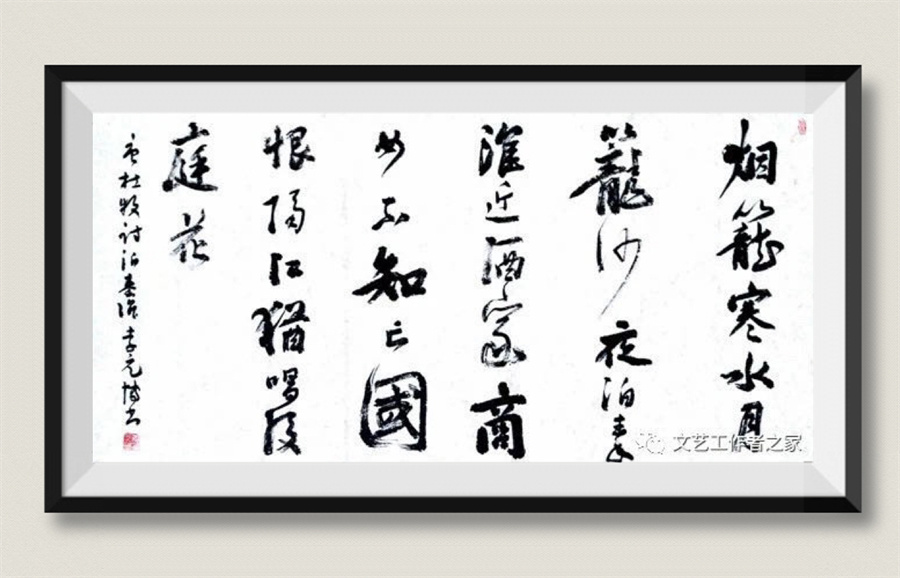 烟籠寒水月
籠沙夜泊秦
淮近酒家商
女不知亡國
恨隔江猶唱後
庭花
唐杜牧詩泊秦淮 李元博书
文艺工作者之家